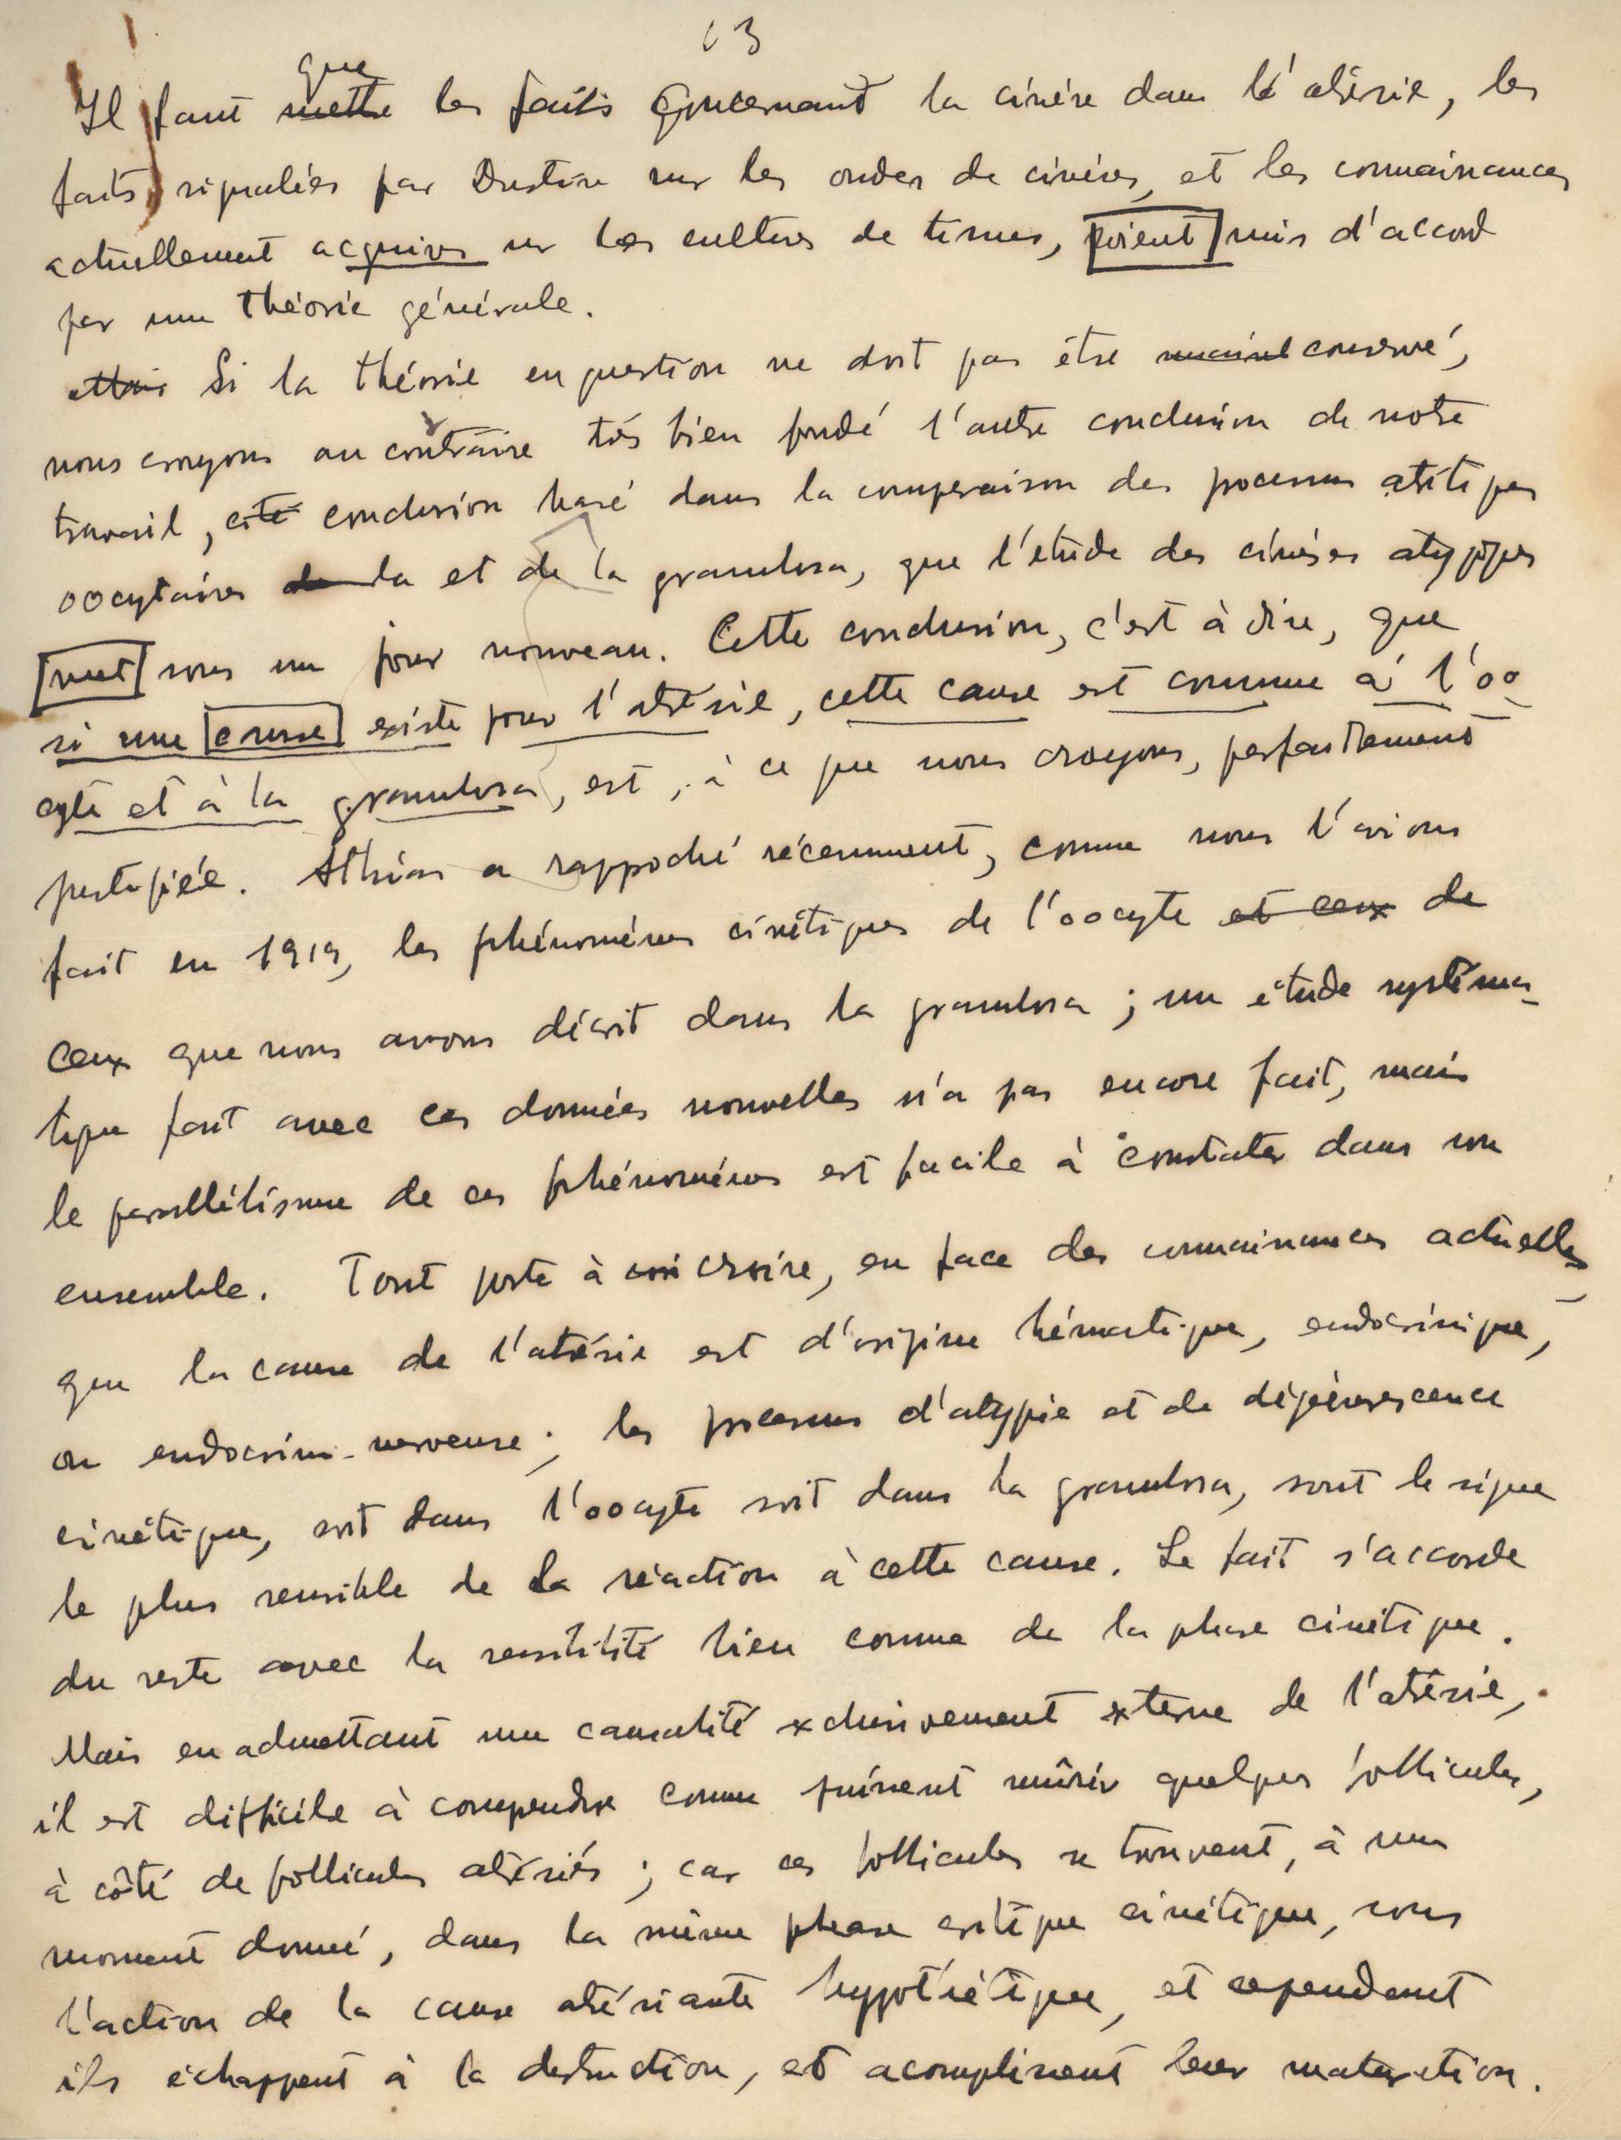 63
que
Il faut mettre les faits concernant la cinèse dans l'atrésie, les
faits signalées par Dustin sur les ondes de cinèses, et les connaissances
actuellement acquises sur les cultures de tissus, soient mis d'accord
par une théorie générale.
Si la théorie en question ne doit pas être conservé,
nous croyons au contraire très bien fondé l'autre conclusion de notre
travail, cette conclusion basé dans la comparaison des processus atrétiques
oocytaires de la et de la granulosa, que l'étude des cinèses atypiques
met sous un jour nouveau. Cette conclusion, c'est à dire, que
si une cause existe pour l'atrésie, cette cause est commune à l'oo
cyte et à la granulosa, est, à ce que nous croyons, parfaitement
justifiée. Athias a rapproché récemment, comme nous l'avions
fait en 1919, les phénomènes cinétiques de l'oocyte et ceux de
ceux que nous avons décrit dans la granulosa ; une étude systéma-
tique fait avec ces données nouvelles n'a pas encore fait, mais
le parallélisme de ces phénomènes est facile à constater dans son
ensemble. Tout porte à croire, en face des connaissances actuelles,
que la cause de l'atrésie est d'origine hématique, endocrinique,
ou endocrino-nerveuse ; les processus d'atypie et de dégénérescence
cinétique, soit dans l'oocyte soit dans la granulosa, sont le signe
le plus sensible de la réaction à cette cause. Le fait s'accorde
du reste avec la sensibilité bien connue de la phase cinétique.
Mais en admettant une causalité exclusivement externe de l'atrésie,
il est difficile à comprendre comme puissent mûrir quelques follicules,
à côté de follicules atrésiés ; car ces follicules se trouvent, à un
moment donné, dans la même phase critique cinétique, sous
l'action de la cause atrésiante hypothétique, et cependant
ils échappent à la destruction, et acomplissent leur maturation.